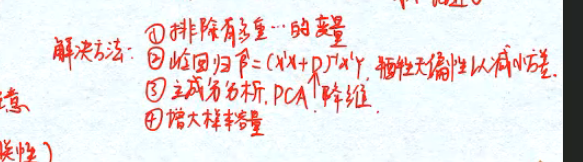 解决方法: ①排除有多重…的变量
②岭回归 β̂=(X'X+D)⁻¹X'Y, 牺牲无偏性以减小方差.
③主成分分析, PCA 降维.
④增大样本容量
意
性)